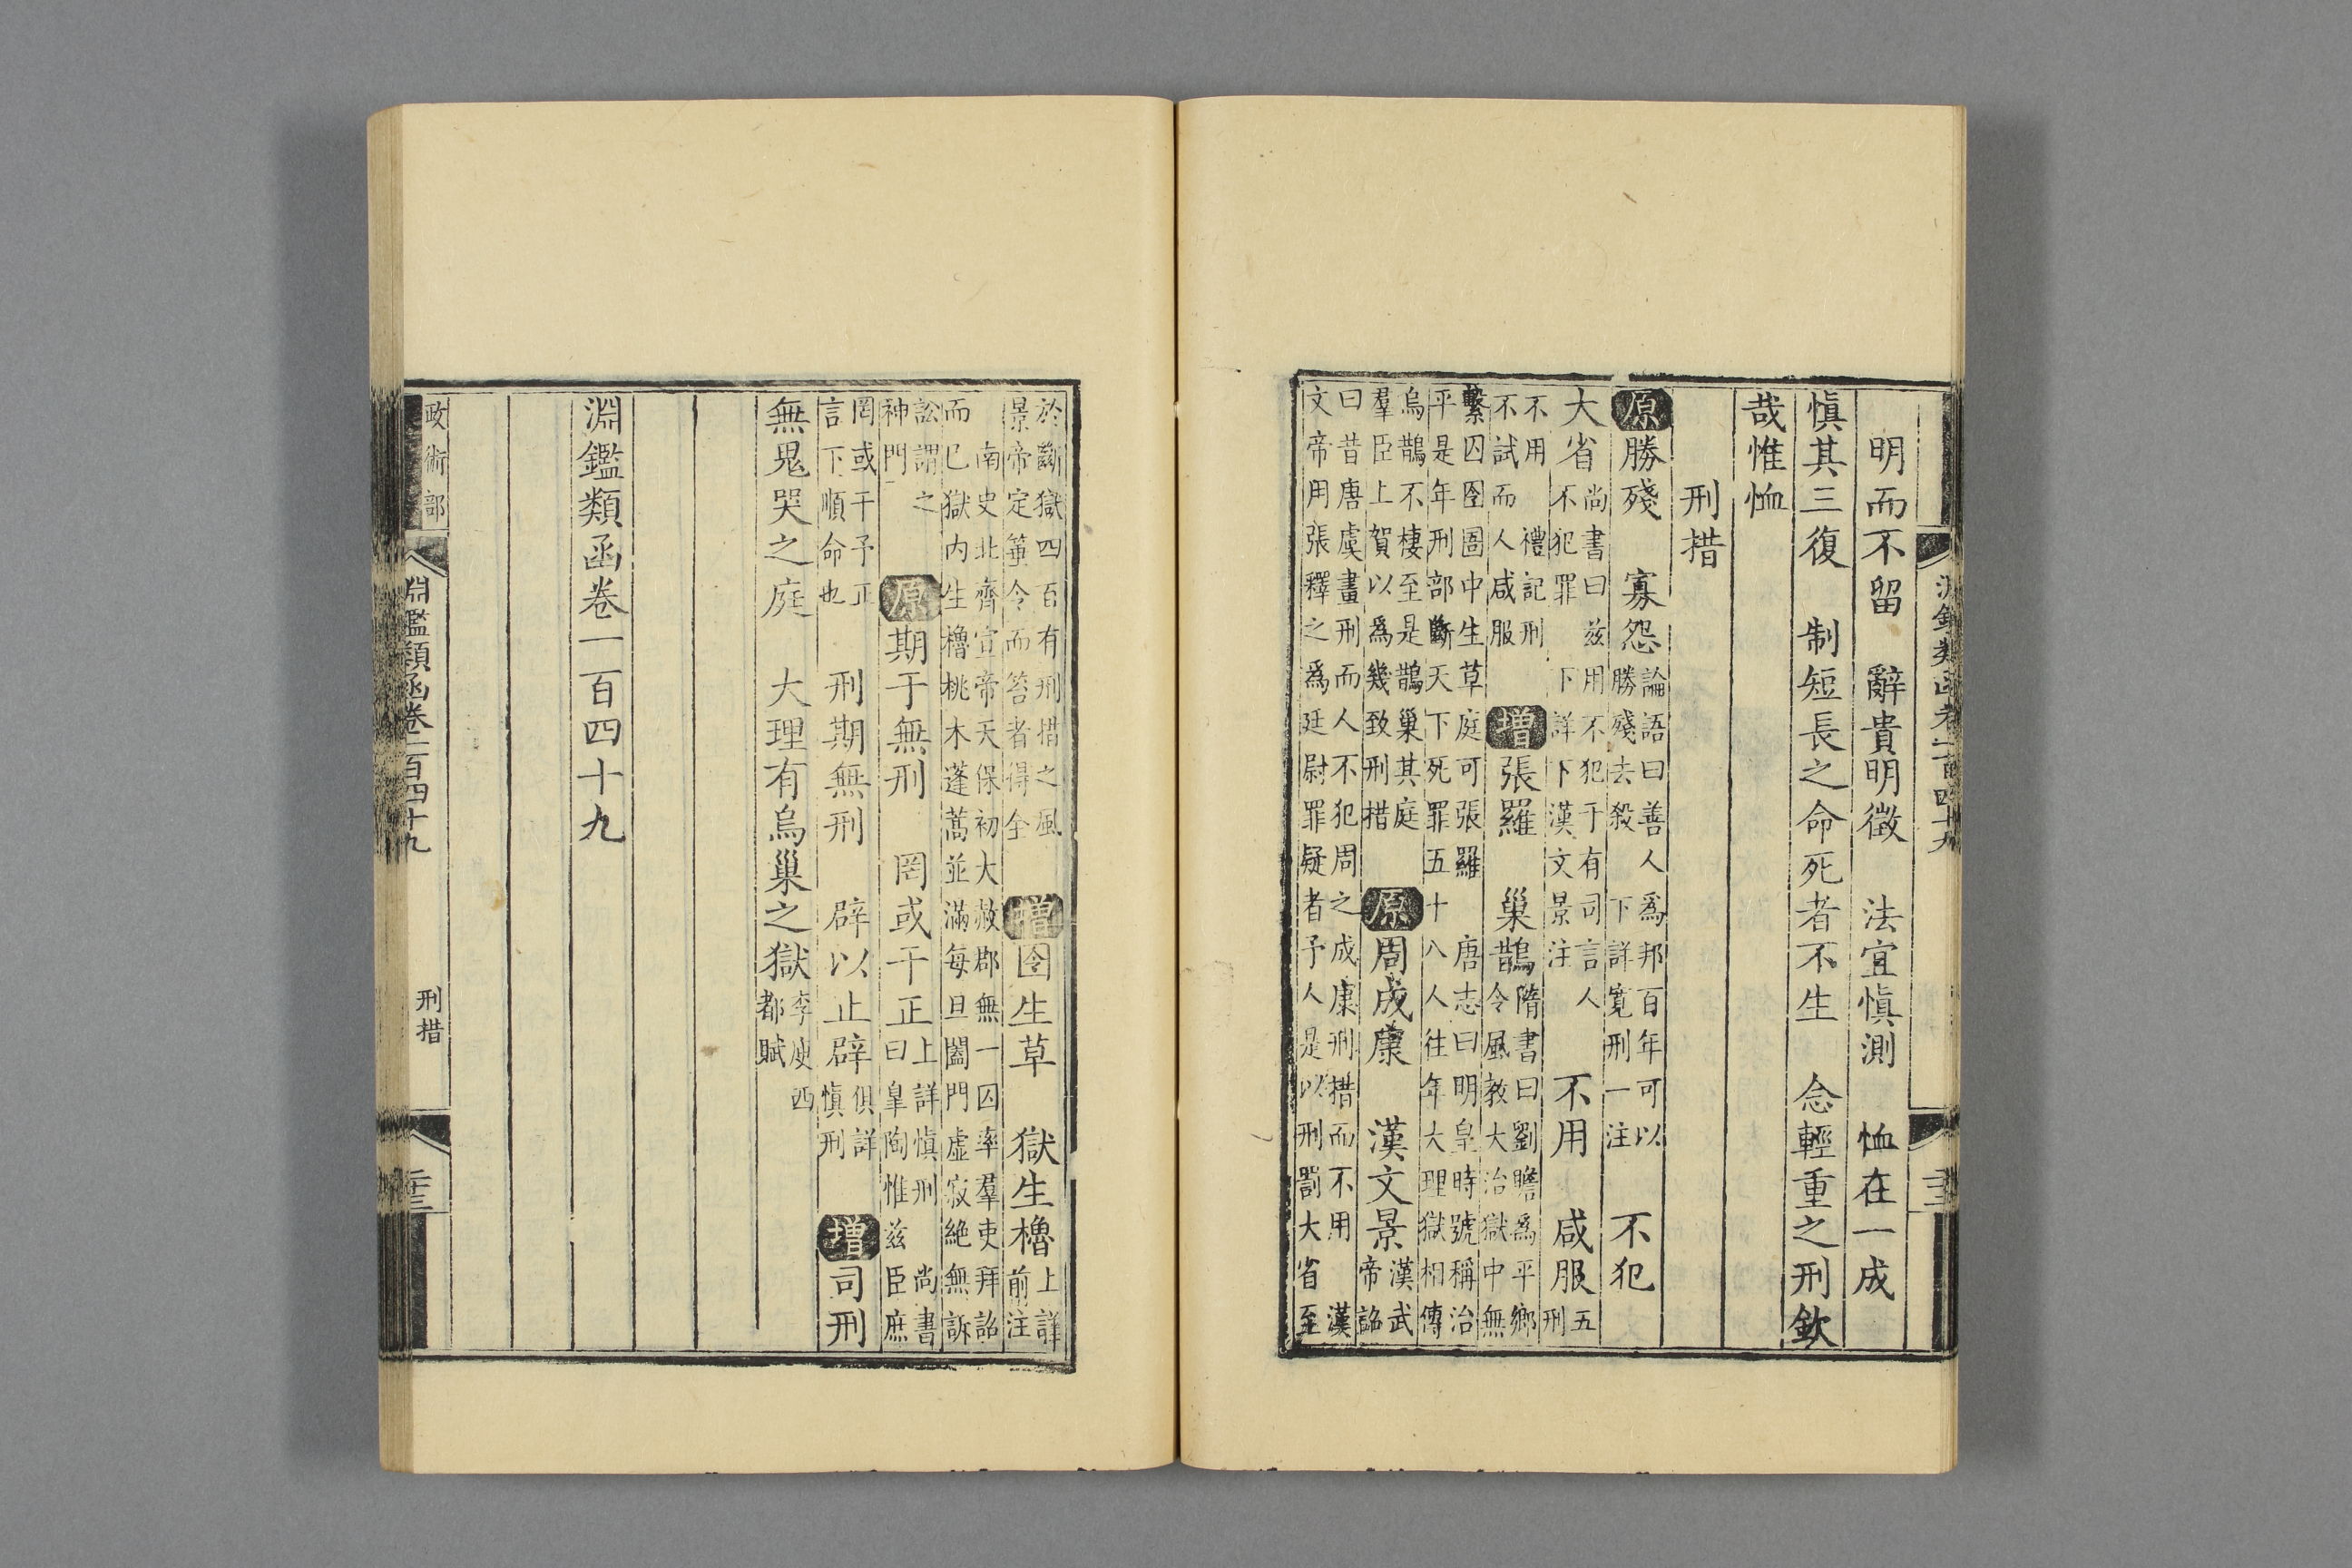 明而不留　辭貴明徵　法宜慎測　恤在一成
慎其三復　制短長之命死者不生　念輕重之刑欽
哉惟恤
刑措
原勝殘　寡怨
論語曰善人爲邦百年可以
勝殘去殺　下詳寬刑一注
不犯
大省
尚書曰兹用不犯于有司言人
不犯罪　下詳下漢文景注
不用　咸服
五
刑
不用　禮記刑
不試而人咸服
增張羅　巢鵲
隋書曰劉瞻爲平鄉
令風教大治獄中無
繫囚囹圄中生草庭可張羅　唐志曰明皇時號稱治
平是年刑部斷天下死罪五十八人往年大理獄相傳
烏鵲不棲至是鵲巢其庭
羣臣上賀以爲幾致刑措
原周成康　漢文景
漢武
帝詔
曰昔唐虞畫刑而人不犯周之成康刑措而不用　漢
文帝用張釋之爲廷尉罪疑者予人是以刑罰大省至
於斷獄四百有刑措之風
景帝定箠令而笞者得全
增囹生草　獄生櫓
上詳
前注
南史北齊宣帝天保初大赦郡無一囚率羣吏拜詔
而已獄内生櫓桃木蓬蒿並滿每旦闔門虛寂絶無訴
訟謂之
神門
原期于無刑　罔或干正
上詳慎刑　尚書
曰臯陶惟兹臣庶
罔或干予正
言下順命也
刑期無刑　辟以止辟
俱詳
慎刑
增司刑
無鬼哭之庭　大理有烏巢之獄
李庾西
都賦
淵鑑類函卷一百四十九
政術部
淵鑑類函卷一百四十九
刑措